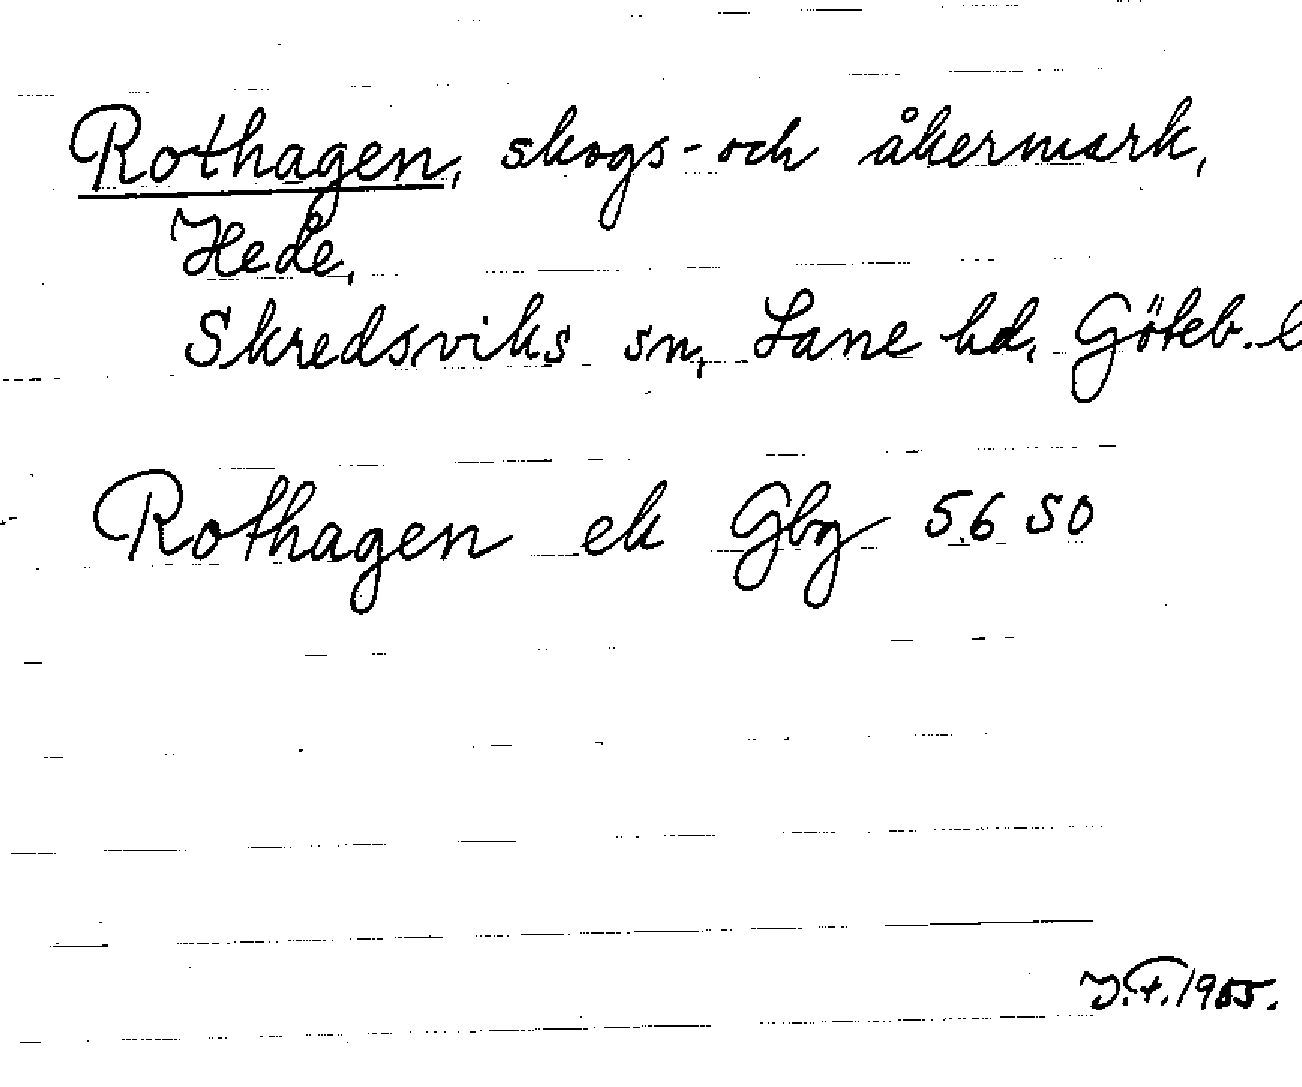 Rothagen, skogs- och åkermark,
Hede,
Skredsviks sn, Lane hd, Göteb. l
Rothagen ek Gbg 56 SO
J.F. 1955.